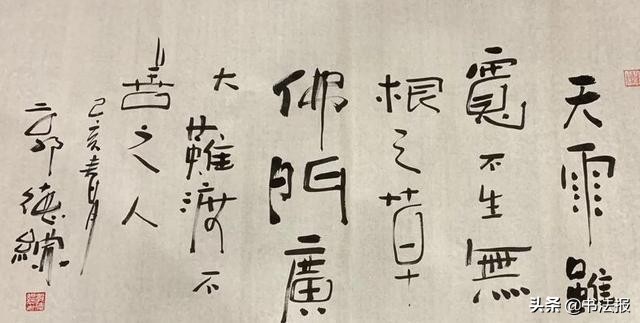 天雨雖
寬不生無
根之草
佛門廣
大難渡不
善之人
己亥春月
郭德綱
头条 @书法报